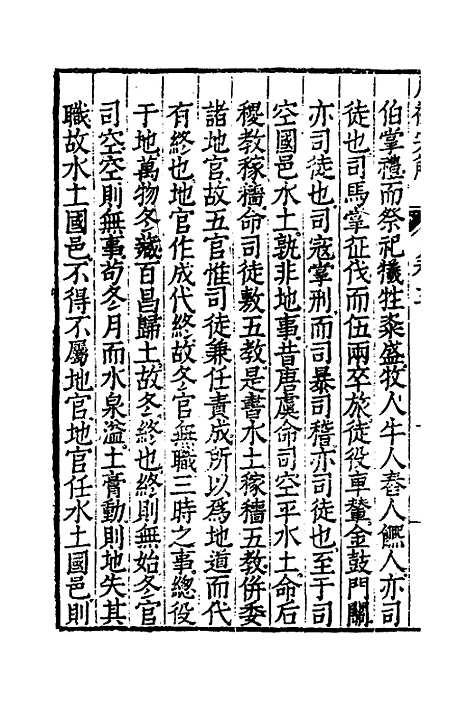 伯掌禮而祭祀犧牲粢盛牧人牛人舂人饎人亦司
徒也司馬掌征伐而伍兩卒旅徒役車輦金鼓門關
亦司徒也司寇掌刑而司暴司稽亦司徒也至于司
空國邑水土孰非地事昔唐虞命司空平水土命后
稷教稼穡命司徒敷五教是書水土稼穡五教併委
諸地官故五官惟司徒兼任責成所以為地道而代
有終也地官作成代終故冬官無職三時之事總役
于地萬物冬藏百昌歸土故冬終也終則無始冬官
司空空則無事苟冬月而水泉溢土膏動則地失其
職故水土國邑不得不屬地官地官任水土國邑則